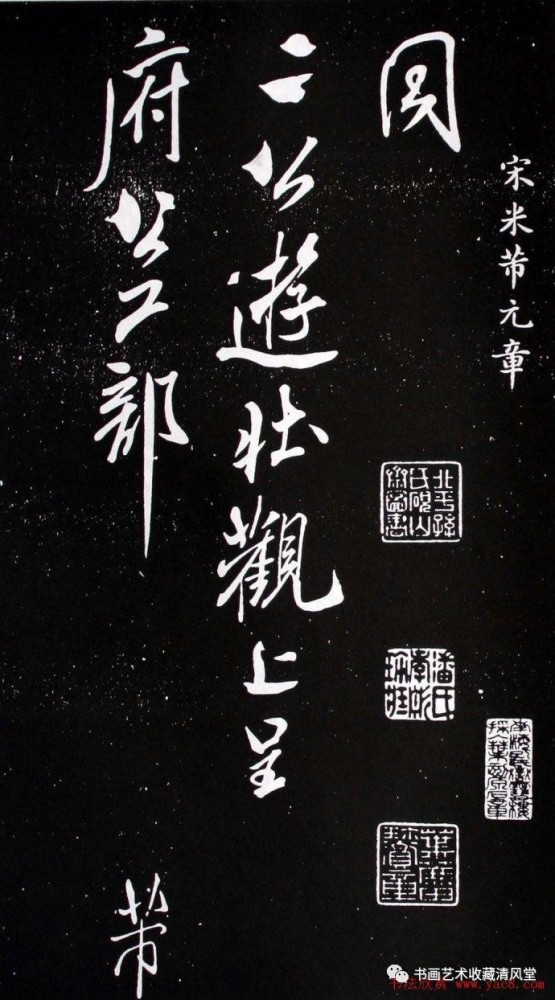 宋米芾元章
同
二公遊壯觀上呈
府公工部
芾
书画艺术收藏清风堂
书法欣赏 www.yac8.com